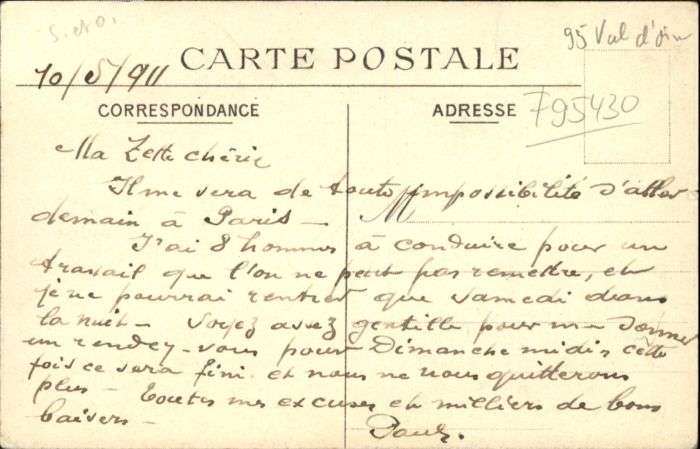 S. et O.
95 Val d'Oise
CARTE POSTALE
10/5/911
F95430
CORRESPONDANCE
ADRESSE
Ma Zette chérie
Il me sera de toute impossibilité d'aller
demain à Paris —
J'ai 8 hommes à conduire pour un
travail que l'on ne peut pas remettre, et
je ne pourrai rentrer que samedi dans
la nuit — Soyez assez gentille pour me donner
un rendez-vous pour Dimanche midi, cette
fois ce sera fini et nous ne nous quitterons
plus — Toutes mes excuses et milliers de bons
baisers —